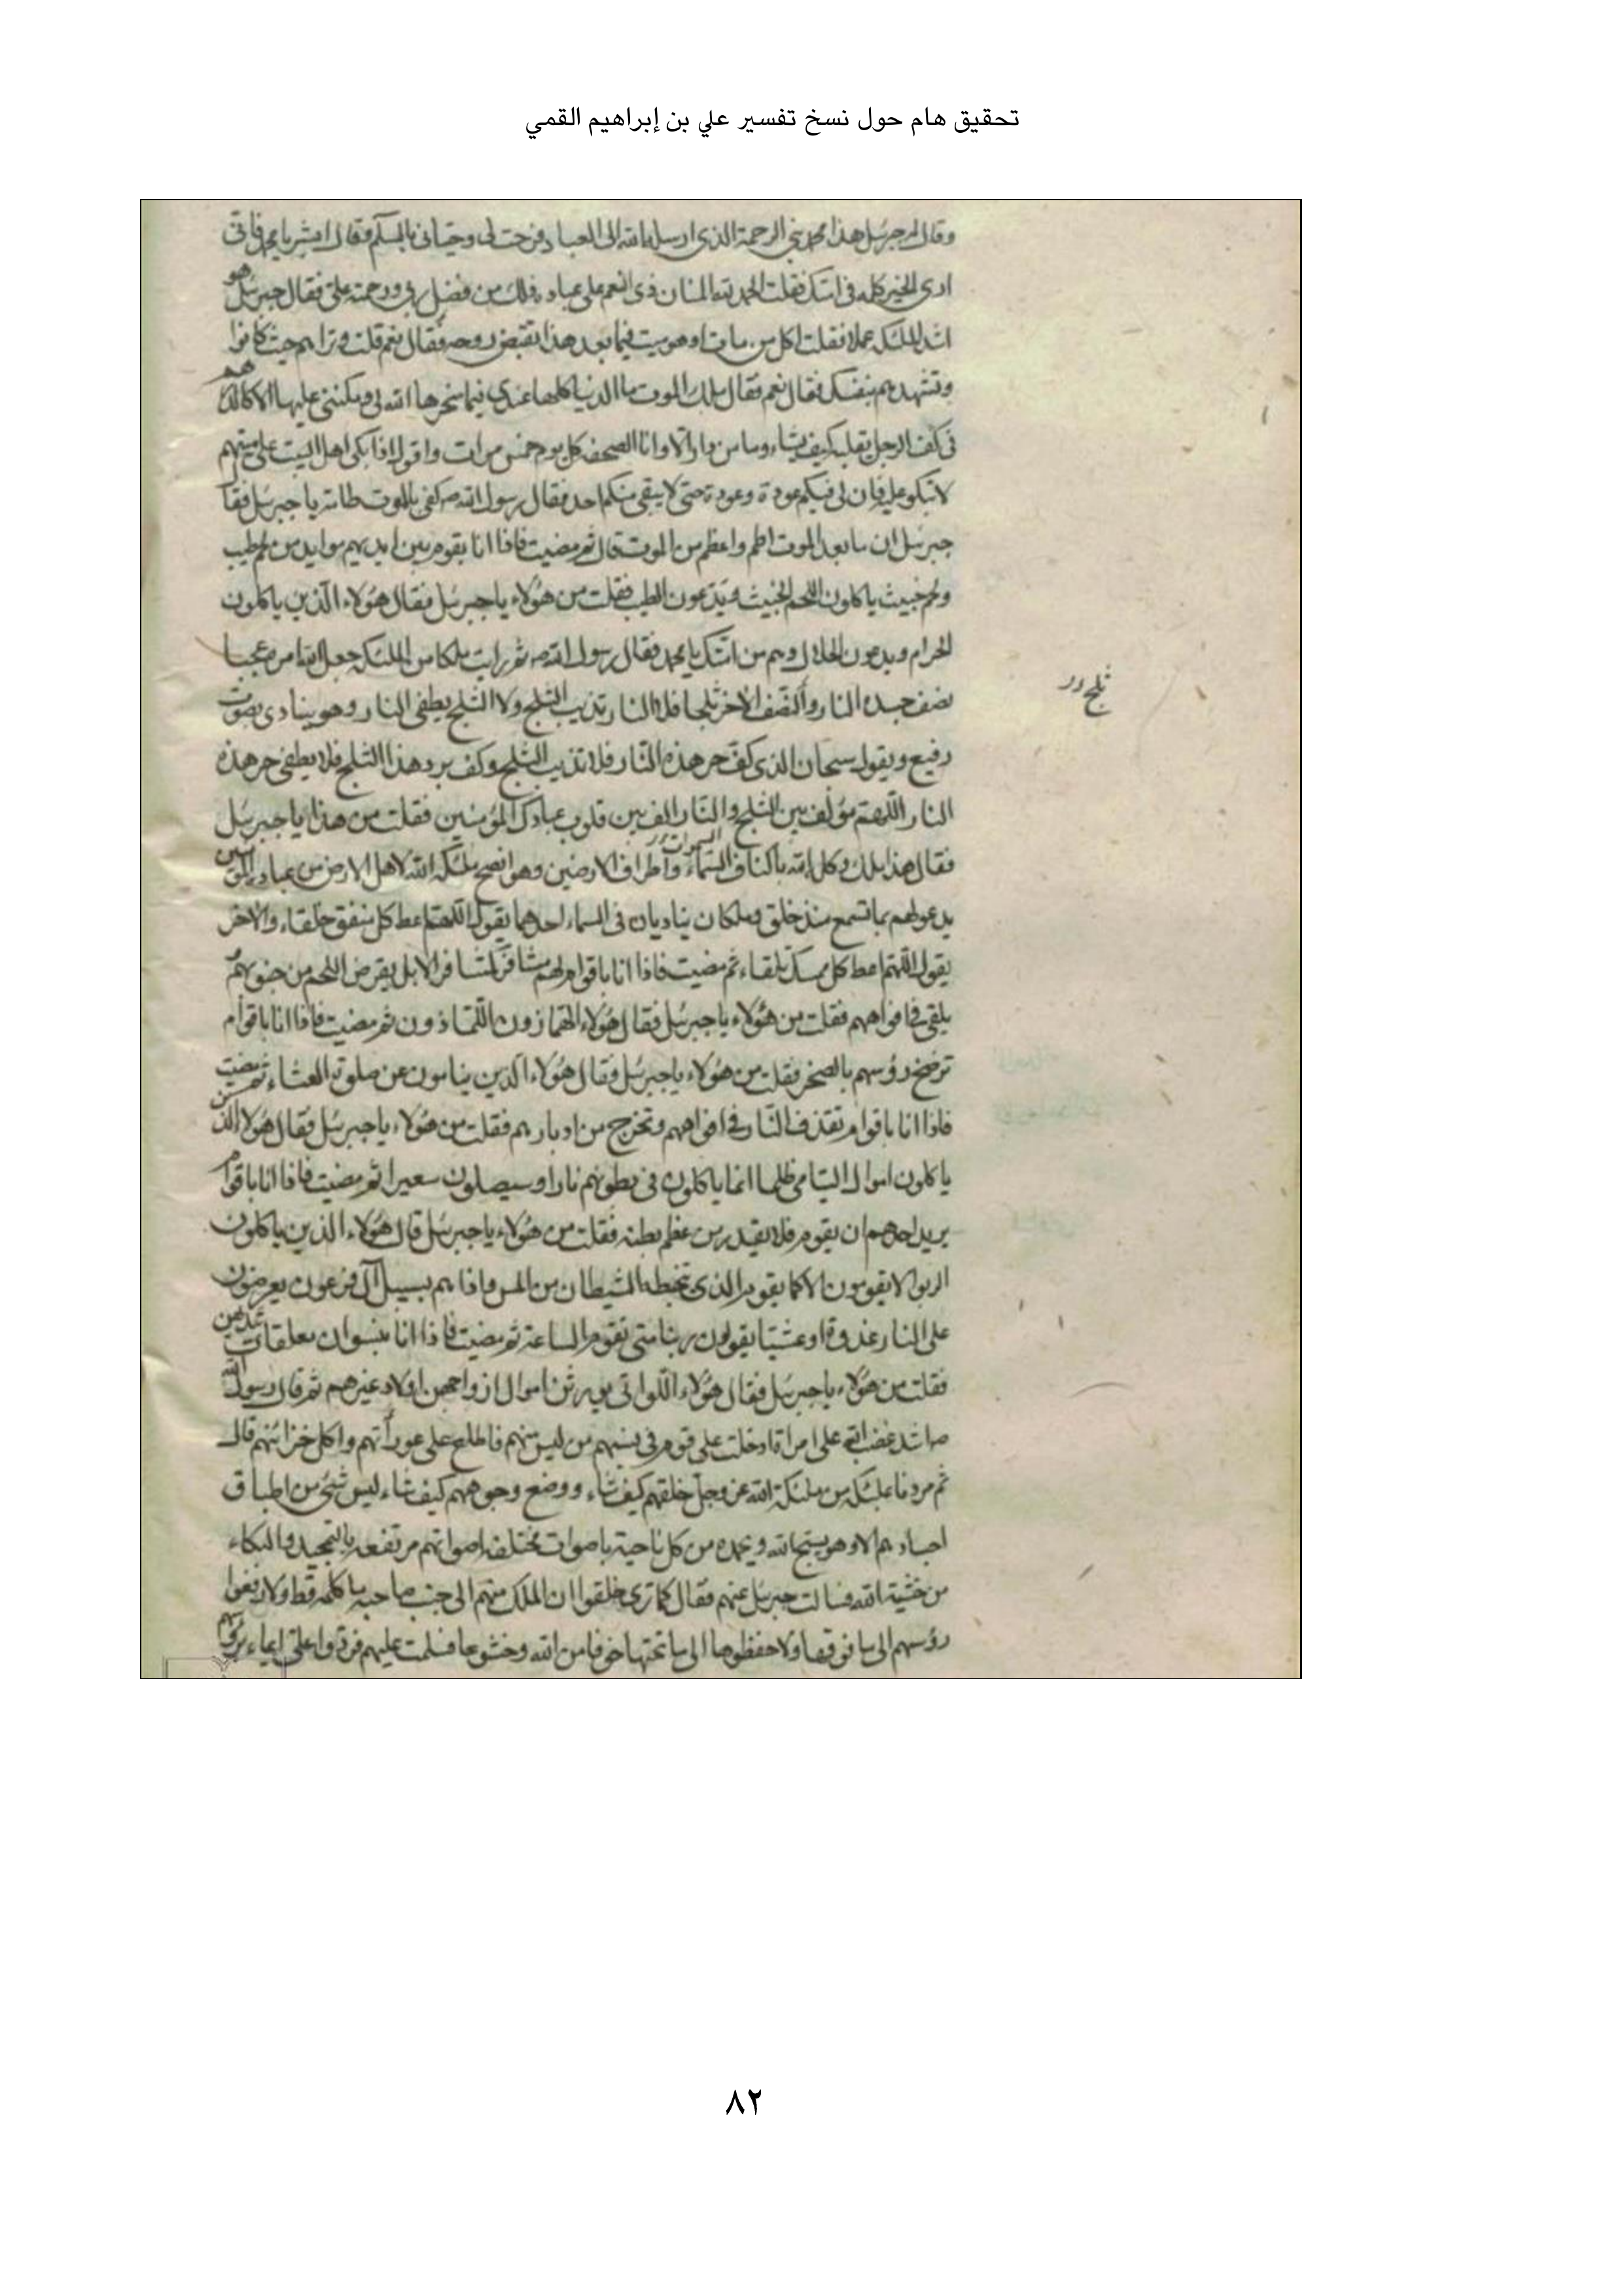 تحقيق هام حول نسخ تفسير علي بن إبراهيم القمي
وقال له جبرئيل هذا محمد نبي الرحمة الذي ارسله الله الى العباد فرحب لي وحياني بالسلم وقال ابشر يا محمد فاني
ارى الخير كله في امتك فقلت الحمد لله المنان ذي النعم على عباده ذلك من فضل ربي ورحمته علي فقال جبرئيل هو
اشد الملئكه عملا فقلت اكل من مات او هو ميت فيما بعد هذا تقبض روحه فقال نعم قلت وتراهم حيث كانوا
وتشهدهم بنفسك فقال نعم فقال ملك الموت ما الدنيا كلها عندي فيما سخرها الله لي ومكنني عليها الا كالدرهم
في كف الرجل يقلبه كيف يشاء وما من دار الا وانا اتصحفه كل يوم خمس مرات واقول اذا بكى اهل البيت على ميتهم
لا تبكو عليه فان لي فيكم عودة وعودة حتى لا يبقى منكم احد فقال رسول الله ص كفى بالموت طامة يا جبرئيل فقا
جبرئيل ان ما بعد الموت اطم واعظم من الموت قال ثم مضيت فاذا انا بقوم بين ايديهم موايد من لحم طيب
ولحم خبيث ياكلون اللحم الخبيث ويدعون الطيب فقلت من هؤلاء يا جبرئيل فقال هؤلاء الذين ياكلون
الحرام ويدعون الحلال وهم من امتك يا محمد فقال رسول الله ص ثم رايت ملكا من الملئكه جعل الله امره عجبا
نصف جسده النار والنصف الاخر ثلجا فلا النار تذيب الثلج ولا الثلج يطفى النار وهو ينادى بصوت
ثلج در
رفيع ويقول سبحان الذي كف حر هذه النار فلا تذيب الثلج وكف برد هذا الثلج فلا يطفى حر هذه
النار اللهم مؤلف بين الثلج والنار الف بين قلوب عبادك المؤمنين فقلت من هذا يا جبرئيل
السموات
فقال هذا ملك وكله الله باكناف السماء واطراف الارضين وهو انصح ملئكه الله لاهل الارض من عباده المؤمنين
يدعو لهم بما تسمع منذ خلق وملكان يناديان في السماء احدهما يقول اللهم اعط كل منفق خلفا والاخر
يقول اللهم اعط كل ممسك تلفا ثم مضيت فاذا انا باقوام لهم مشافر كمشافر الابل يقرض اللحم من جنوبهم
يلقى في افواههم فقلت من هؤلاء يا جبرئيل فقال هؤلاء الهمازون اللمازون ثم مضيت فاذا انا باقوام
ترضخ رؤسهم بالصخر فقلت من هؤلاء يا جبرئيل فقال هؤلاء الذين ينامون عن صلوة العشاء ثم مضيت
فاذا انا باقوام تقذف النار في افواههم وتخرج من ادبارهم فقلت من هؤلاء يا جبرئيل فقال هؤلاء الذين
ياكلون اموال اليتامى ظلما انما ياكلون في بطونهم نارا وسيصلون سعيرا ثم مضيت فاذا انا باقوام
يريد احدهم ان يقوم فلا يقدر من عظم بطنه فقلت من هؤلاء يا جبرئيل قال هؤلاء الذين ياكلون
الربوا لا يقومون الا كما يقوم الذي تخبطه الشيطان من المس واذا هم بسبيل آل فرعون يعرضون
على النار غدوا وعشيا يقولون ربنا متى تقوم الساعة ثم مضيت فاذا انا بنسوان معلقات بثديهن
فقلت من هؤلاء يا جبرئيل فقال هؤلاء اللواتي يورثن اموال ازواجهن اولاد غيرهم ثم قال رسول الله
ص اشد غضب الله على امراة ادخلت على قوم في نسبهم من ليس منهم فاطلع على عوراتهم واكل خزائنهم قال
ثم مررنا بملئكه من ملئكة الله عز وجل خلقهم كيف شاء ووضع وجوههم كيف شاء ليس شئ من اطباق
اجسادهم الا وهو يسبح الله ويحمده من كل ناحية باصوات مختلفة اصواتهم مرتفعه بالتحميد والبكاء
من خشية الله فسالت جبرئيل عنهم فقال كما ترى خلقوا ان الملك منهم الى جنب صاحبه ما كلمه قط ولا رفعوا
رؤسهم الى ما فوقها ولا خفضوها الى ما تحتها خوفا من الله وخشوعا فسلمت عليهم فردوا على ايماء برؤسهم
٨٢